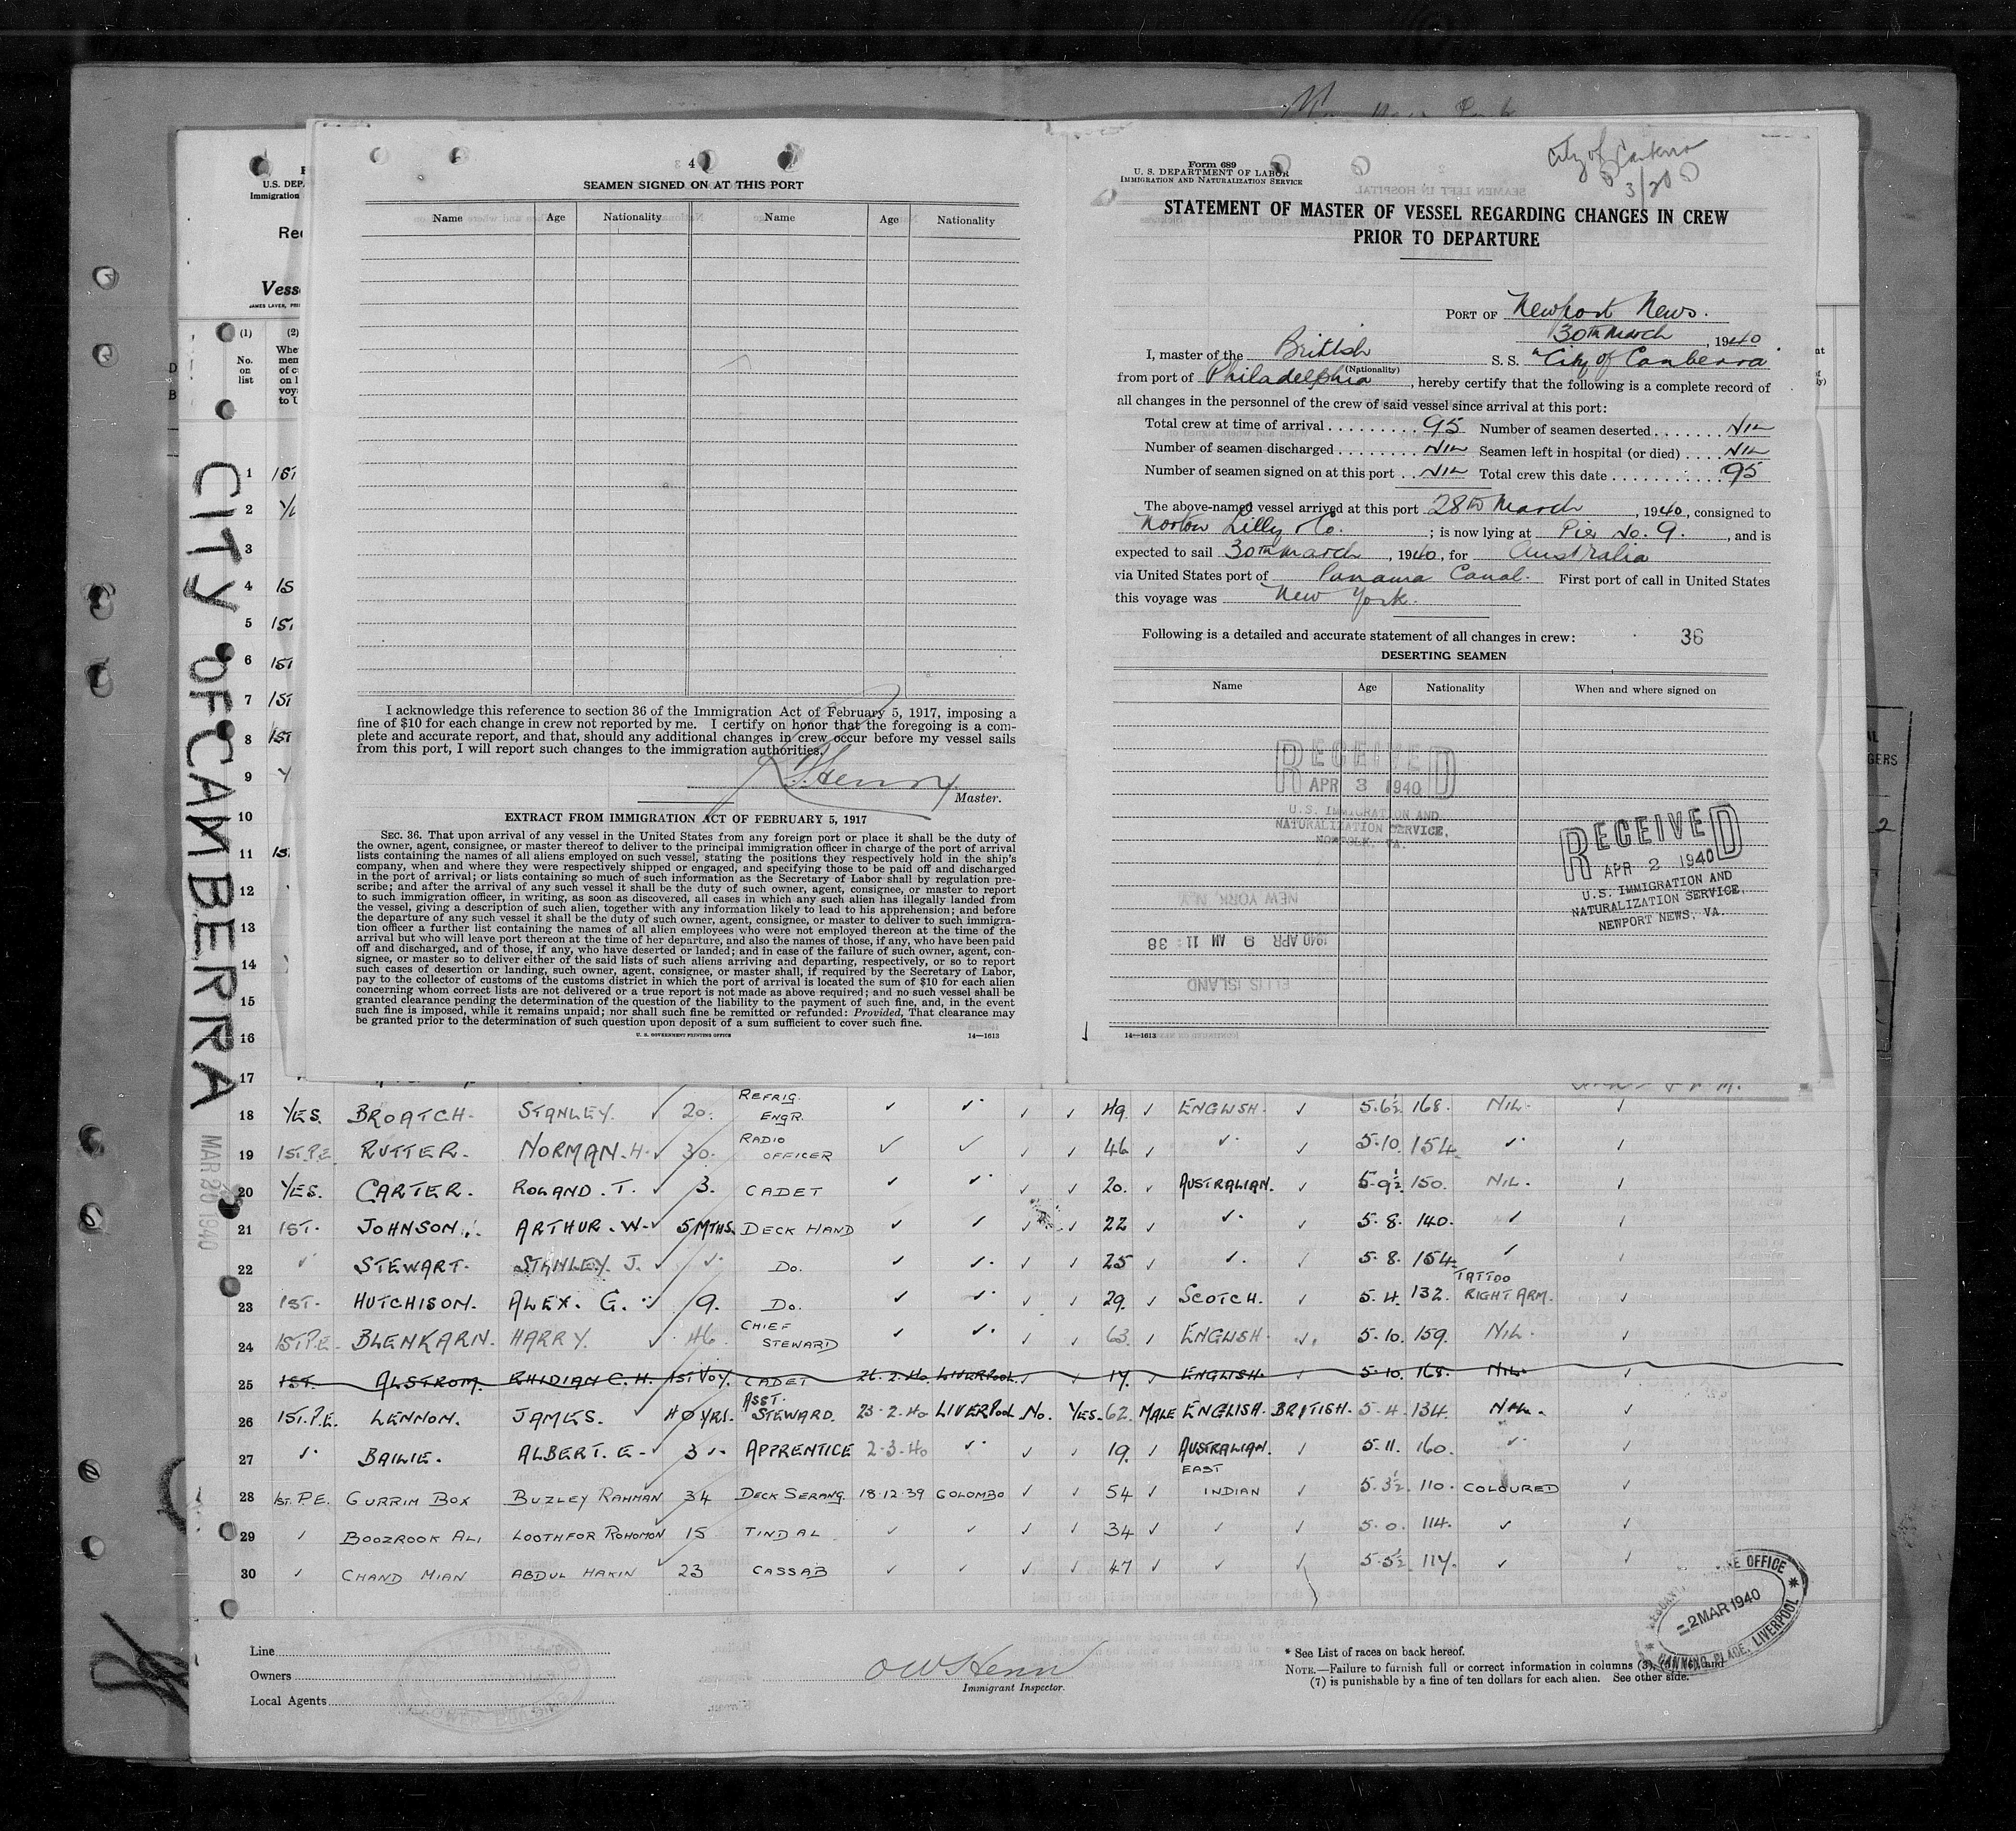 4
SEAMEN SIGNED ON AT THIS PORT
Name Age Nationality Name Age Nationality
I acknowledge this reference to section 36 of the Immigration Act of February 5, 1917, imposing a
fine of $10 for each change in crew not reported by me. I certify on honor that the foregoing is a com-
plete and accurate report, and that, should any additional changes in crew occur before my vessel sails
from this port, I will report such changes to the immigration authorities.
Henry
Master.
EXTRACT FROM IMMIGRATION ACT OF FEBRUARY 5, 1917
SEC. 36. That upon arrival of any vessel in the United States from any foreign port or place it shall be the duty of
the owner, agent, consignee, or master thereof to deliver to the principal immigration officer in charge of the port of arrival
lists containing the names of all aliens employed on such vessel, stating the positions they respectively hold in the ship's
company, when and where they were respectively shipped or engaged, and specifying those to be paid off and discharged
in the port of arrival; or lists containing so much of such information as the Secretary of Labor shall by regulation pre-
scribe; and after the arrival of any such vessel it shall be the duty of such owner, agent, consignee, or master to report
to such immigration officer, in writing, as soon as discovered, all cases in which any such alien has illegally landed from
the vessel, giving a description of such alien, together with any information likely to lead to his apprehension; and before
the departure of any such vessel it shall be the duty of such owner, agent, consignee, or master to deliver to such immigra-
tion officer a further list containing the names of all alien employees who were not employed thereon at the time of the
arrival but who will leave port thereon at the time of her departure, and also the names of those, if any, who have been paid
off and discharged, and of those, if any, who have deserted or landed; and in case of the failure of such owner, agent, con-
signee, or master so to deliver either of the said lists of such aliens arriving and departing, respectively, or so to report
such cases of desertion or landing, such owner, agent, consignee, or master shall, if required by the Secretary of Labor,
pay to the collector of customs of the customs district in which the port of arrival is located the sum of $10 for each alien
concerning whom correct lists are not delivered or a true report is not made as above required; and no such vessel shall be
granted clearance pending the determination of the question of the liability to the payment of such fine, and, in the event
such fine is imposed, while it remains unpaid; nor shall such fine be remitted or refunded: Provided, That clearance may
be granted prior to the determination of such question upon deposit of a sum sufficient to cover such fine.
U. S. GOVERNMENT PRINTING OFFICE 14—1613
City of
3/20
Form 689
U. S. DEPARTMENT OF LABOR
IMMIGRATION AND NATURALIZATION SERVICE
STATEMENT OF MASTER OF VESSEL REGARDING CHANGES IN CREW
PRIOR TO DEPARTURE
PORT OF Newport News.
30th March, 1940
I, master of the British S. S. "City of Canberra
(Nationality)
from port of Philadelphia, hereby certify that the following is a complete record of
all changes in the personnel of the crew of said vessel since arrival at this port:
Total crew at time of arrival 95 Number of seamen deserted NIL
Number of seamen discharged NIL Seamen left in hospital (or died) NIL
Number of seamen signed on at this port NIL Total crew this date 95
The above-named vessel arrived at this port 28th March, 1940, consigned to
Norton Lilly & Co.; is now lying at Pier No. 9., and is
expected to sail 30th March, 1940, for Australia
via United States port of Panama Canal. First port of call in United States
this voyage was New York.
Following is a detailed and accurate statement of all changes in crew: 36
DESERTING SEAMEN
Name Age Nationality When and where signed on
RECEIVED
APR 3 1940
U.S. IMMIGRATION AND
NATURALIZATION SERVICE,
NORFOLK, VA.
RECEIVED
APR 2 1940
U.S. IMMIGRATION AND
NATURALIZATION SERVICE,
NEWPORT NEWS, VA.
NEW YORK, N.Y.
1940 APR 9 AM 11: 38
ELLIS ISLAND
14—1613
U.S. DEP
Immigration
Vess
(1) (2)
No.
on
list
CITY OF CANBERRA
MAR 20 1940
1 1ST
2
3
4 1S
5 1ST
6 1ST
7 1ST
8 1ST
9
10
11 1S
12
13
14
15
16
17
18 YES. BROATCH. STANLEY. ✓ 20. REFRIG. ENGR. ✓ ✓ ✓ ✓ 49. ✓ ENGLISH. ✓ 5.6½ 168. NIL. ✓
19 1ST.P.E. RUTTER. NORMAN.H. ✓ 30. RADIO OFFICER ✓ ✓ ✓ ✓ 46 ✓ ✓ ✓ 5.10. 154. ✓ ✓
20 YES. CARTER. ROLAND.T. ✓ 3. CADET ✓ ✓ ✓ ✓ 20. ✓ AUSTRALIAN. ✓ 5-9½. 150. NIL. ✓
21 1ST. JOHNSON. ARTHUR.W. ✓ 5 MTHS. DECK HAND ✓ ✓ ✓ ✓ 22 ✓ ✓ ✓ 5.8. 140. ✓ ✓
22 ✓ STEWART. STANLEY. J. ✓ ✓ Do. ✓ ✓ ✓ ✓ 25 ✓ ✓ ✓ 5.8. 154. ✓ ✓
23 1ST. HUTCHISON. ALEX. G. ✓ 9. Do. ✓ ✓ ✓ ✓ 29. ✓ SCOTCH. ✓ 5.4. 132. TATTOO RIGHT ARM. ✓
24 1ST.P.E. BLENKARN. HARRY. ✓ 46 CHIEF STEWARD ✓ ✓ ✓ ✓ 63. ✓ ENGLISH. ✓ 5.10. 159. NIL. ✓
25 1ST. ALSTROM. RHIDIAN C.H. 1ST VOY. CADET 26.2.40 LIVERPOOL. ✓ ✓ 17. ✓ ENGLISH. ✓ 5.10. 168. NIL. ✓
26 1ST.P.E. LENNON. JAMES. ✓ 40 YRS. ASST. STEWARD. 23.2.40 LIVERPOOL No. YES. 62. MALE ENGLISH. BRITISH. 5.4. 134. NIL. ✓
27 ✓ BAILIE. ALBERT. E. ✓ 3 ✓ APPRENTICE 2.3.40 ✓ ✓ ✓ 19. ✓ AUSTRALIAN. ✓ 5.11. 160. ✓ ✓
28 1ST.P.E. GURRIM BOX BUZLEY RAHMAN 34 DECK SERANG. 18.12.39 COLOMBO ✓ ✓ 54 ✓ EAST INDIAN ✓ 5.3½. 110. COLOURED ✓
29 ✓ BOOZROOK ALI LOOTHFOR ROHOMON 15 TINDAL ✓ ✓ ✓ ✓ 34 ✓ ✓ ✓ 5.0. 114. ✓ ✓
30 ✓ CHAND MIAN ABDUL HAKIN ✓ 23 CASSAB ✓ ✓ ✓ ✓ 47 ✓ ✓ ✓ 5.5½ 117. ✓ ✓
Line
Owners
Local Agents
Immigrant Inspector.
* See List of races on back hereof.
NOTE.—Failure to furnish full or correct information in columns (3), (5), (6), and
(7) is punishable by a fine of ten dollars for each alien. See other side.
OFFICE
2 MAR 1940
CANNING PLACE, LIVERPOOL